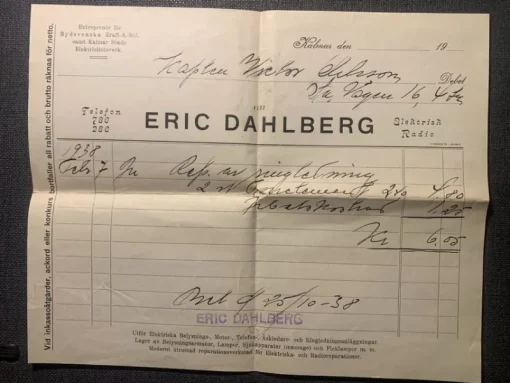 Entreprenör för
Sydsvenska Kraft-A.-Bol.
samt Kalmar Stads
Elektricitetsverk.
Kalmar den 19
Kapten Victor Nilsson
Debet
Sa. Vägen 16, 4 tr
TILL
Telefon
700
200
ERIC DAHLBERG
Elektrisk
Radio
1938
Febr 7 Rep. av ringledning
2 st 2.40 4.80
Arbetskostnad 1.25
Kr 6.05
Bet d/ 25/10-38
ERIC DAHLBERG
Utför Elektriska Belysnings-, Motor-, Telefon-, Åskledare- och Ringledningsanläggningar.
Lager av Belysningsarmatur, Lampor, Sjukapparater (massage) och Ficklampor m. m.
Modernt utrustad reparationsverkstad för Elektriska och Radioreparationer.
Vid inkassoåtgärder, ackord eller konkurs bortfaller all rabatt och brutto räknas för netto.